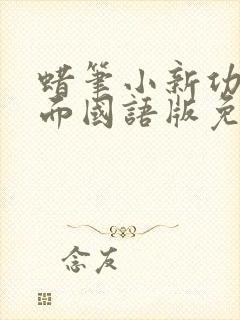 蜡筆小新功
而國語版免
念友